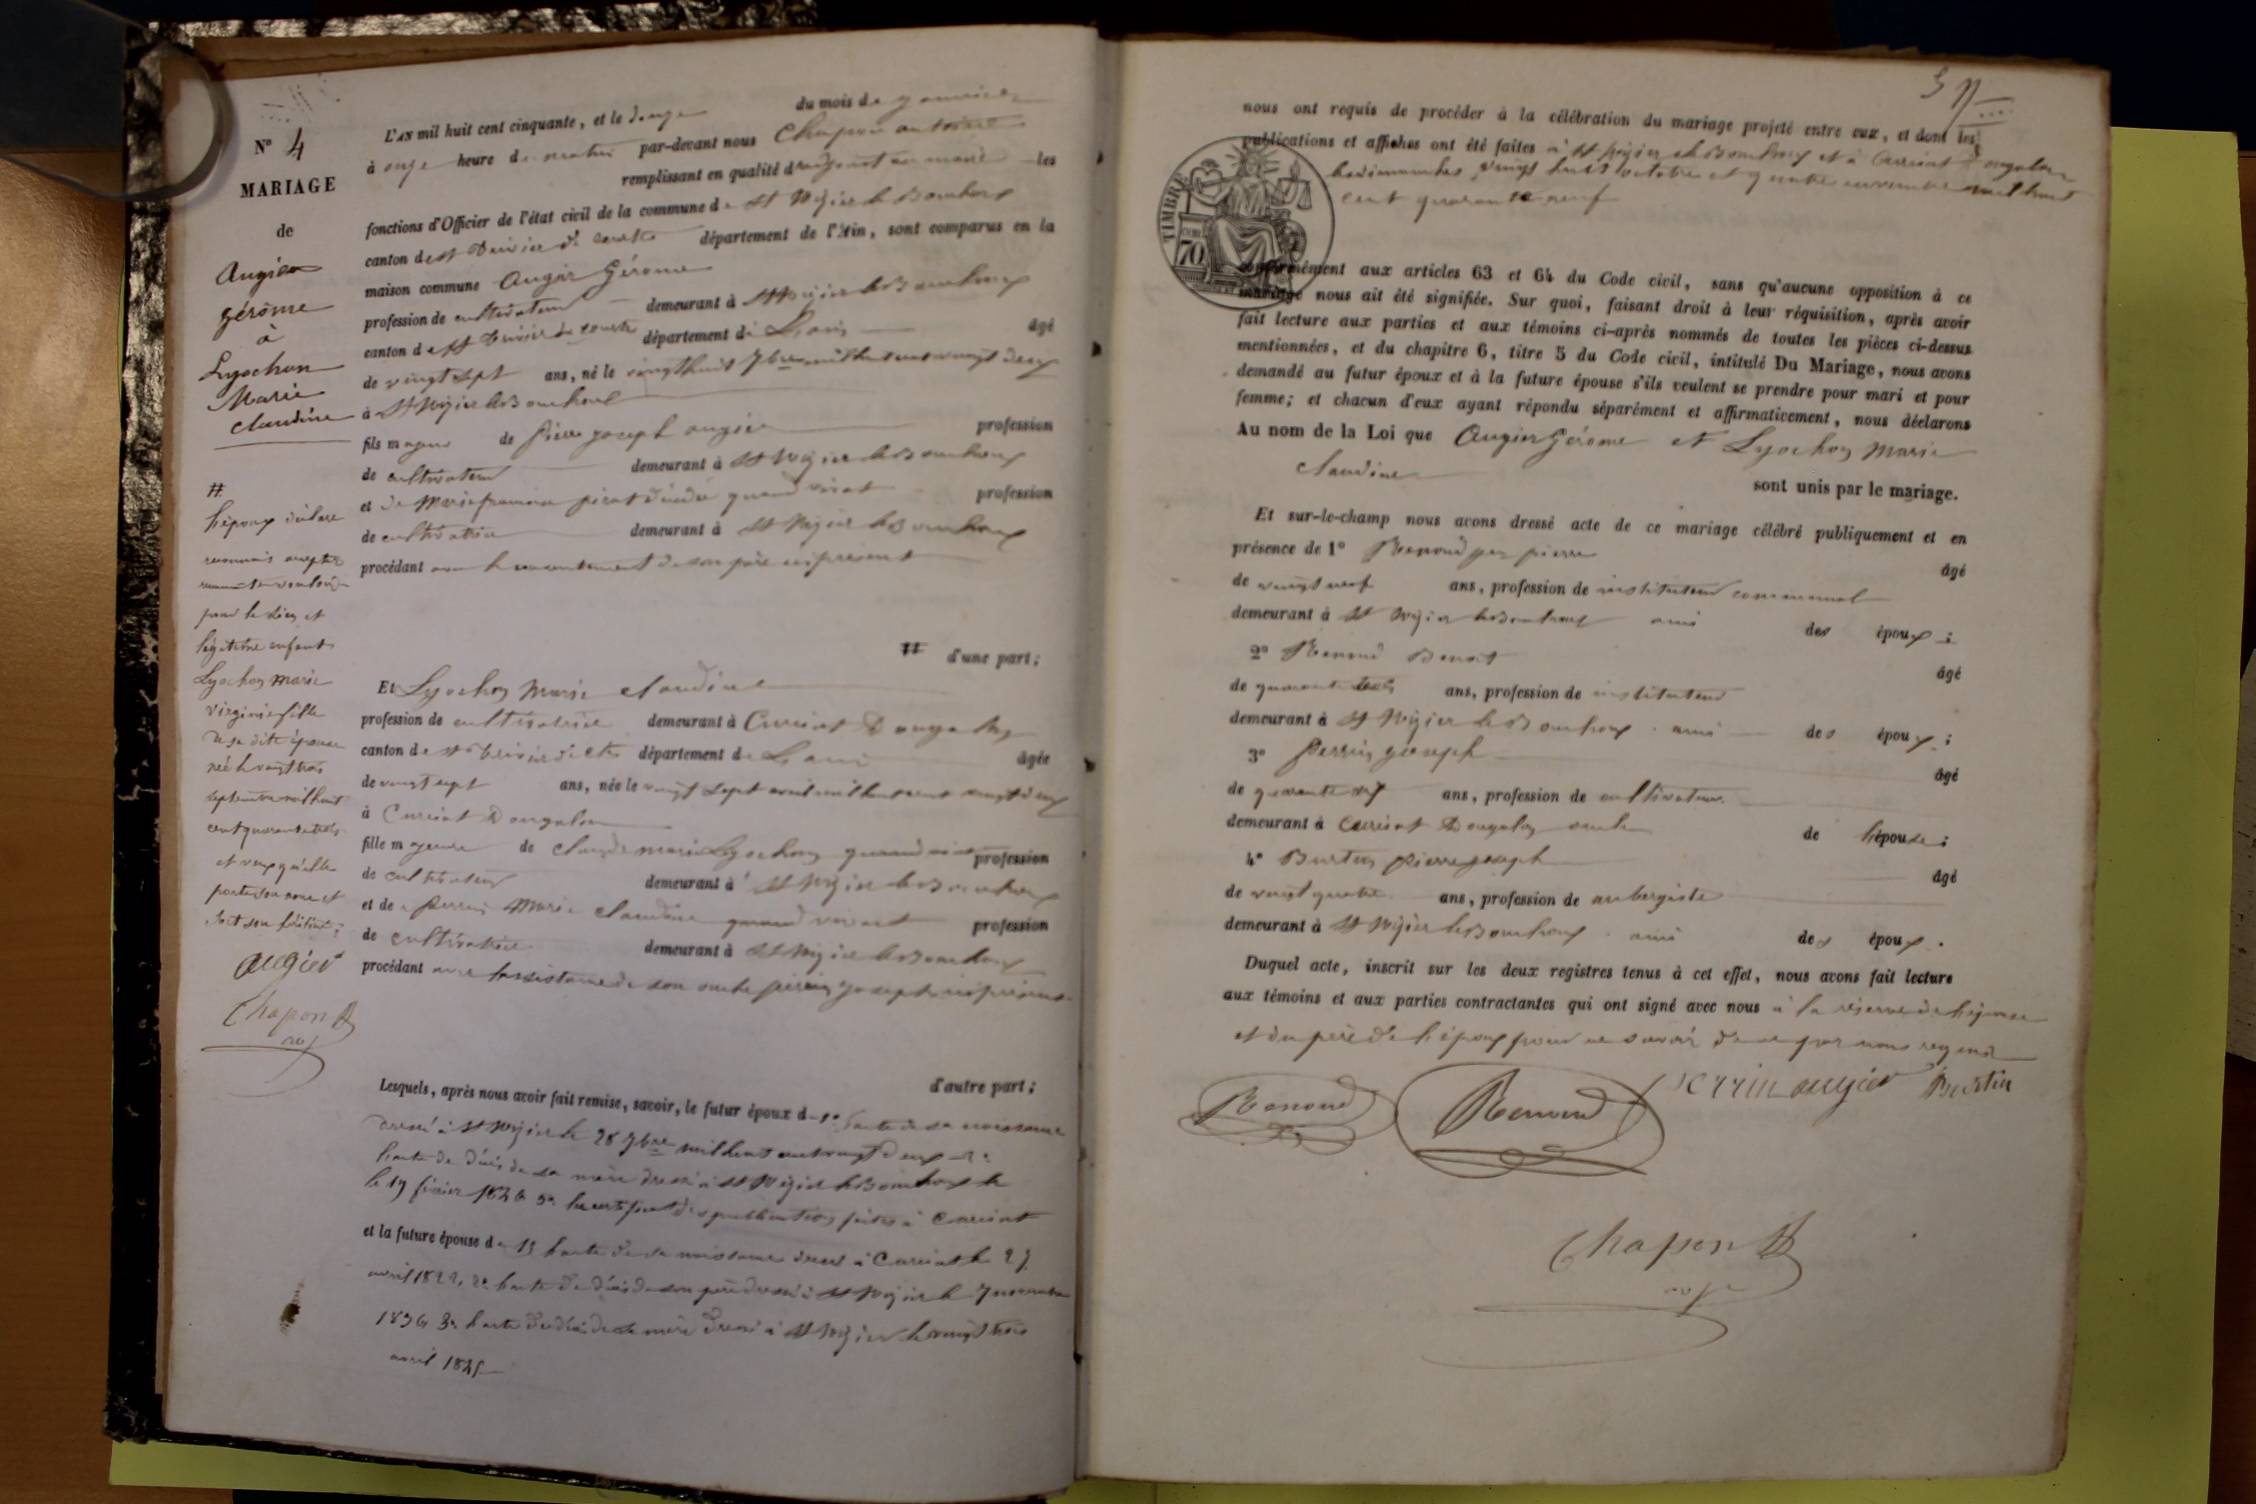 N° 4
MARIAGE
de
Augier
Gérôme
à
Lyochon
Marie
Claudine
L'an mil huit cent cinquante, et le douze du mois de janvier
à onze heure du matin par-devant nous Chapon antoine
remplissant en qualité d'adjoint au maire les
fonctions d'Officier de l'état civil de la commune de St Nizier le Bouchoux
canton de St Trivier de courtes département de l'Ain, sont comparus en la
maison commune Augier Gérome
profession de cultivateur demeurant à St Nizier le Bouchoux
canton de St Trivier de courtes département de L'ain âgé
de vingt sept ans, né le vingt huit 7bre mil huit cent vingt deux
à St Nizier le Bouchoux
fils majeur de Pierre joseph augier profession
de cultivateur demeurant à St Nizier le Bouchoux
et de Marie françoise pirat décédée quand vivait profession
de cultivatrice demeurant à St Nizier le Bouchoux
procédant avec le consentement de son père ici présent
# d'une part;
Et Lyochon Marie claudine
profession de cultivatrice demeurant à Curciat Dongalon
canton de St Trivier de ctes département de L'ain âgée
de vingt sept ans, née le vingt sept avril mil huit cent vingt deux
à Curciat Dongalon
fille majeure de claude marie Lyochon quand vivait profession
de cultivateur demeurant à St Nizier le Bouchoux
et de Perrin Marie Claudine quand vivait profession
de cultivatrice demeurant à St Nizier le Bouchoux
procédant avec l'assistance de son oncle perrin joseph ici présent
d'autre part;
Lesquels, après nous avoir fait remise, savoir, le futur époux de 1° l'acte de sa naissance
dressé à St Nizier le 28 7bre mil huit cent vingt deux 2°
l'acte de décès de sa mère dressé à St Nizier le Bouchoux le
le 19 février 3° le certificat des publications faites à Curciat
et la future épouse de 1° l'acte de sa naissance dressé à Curciat le 27
avril 1822, 2° l'acte de décès de son père dressé à St Nizier le 7 novembre
1836 3° l'acte de décès de sa mère dressé à St Nizier le vingt trois
avril
#
L'époux déclare
reconnais accepter
pour le sien et
légitime enfant
Lyochon marie
virginie fille
de sa dite épouse
née le vingt trois
septembre mil huit
cent quarante trois
et veux qu'elle
porte son nom et
soit son héritière;
augier
Chapon A
adj
nous ont requis de procéder à la célébration du mariage projeté entre eux, et dont les
publications et affiches ont été faites à St Nizier le Bouchoux et à Curciat Dongalon
les dimanches vingt huit octobre et quatre novembre mil huit
cent quarante neuf
TIMBRE
70
conformément aux articles 63 et 64 du Code civil, sans qu'aucune opposition à ce
mariage nous ait été signifiée. Sur quoi, faisant droit à leur réquisition, après avoir
fait lecture aux parties et aux témoins ci-après nommés de toutes les pièces ci-dessus
mentionnées, et du chapitre 6, titre 5 du Code civil, intitulé Du Mariage, nous avons
demandé au futur époux et à la future épouse s'ils veulent se prendre pour mari et pour
femme; et chacun d'eux ayant répondu séparément et affirmativement, nous déclarons
Au nom de la Loi que Augier Gérome et Lyochon Marie
claudine
sont unis par le mariage.
Et sur-le-champ nous avons dressé acte de ce mariage célébré publiquement et en
présence de 1° Renoud pierre âgé
de vingt neuf ans, profession de instituteur communal
demeurant à St Nizier le Bouchoux ami des époux;
2° Renoud Benoit âgé
de quarante ans, profession de instituteur
demeurant à St Nizier le Bouchoux ami des époux;
3° Perrin joseph âgé
de quarante ans, profession de cultivateur
demeurant à Curciat Dongalon oncle de l'épouse;
4° Burtin pierre joseph âgé
de vingt quatre ans, profession de aubergiste
demeurant à St Nizier le Bouchoux ami des époux.
Duquel acte, inscrit sur les deux registres tenus à cet effet, nous avons fait lecture
aux témoins et aux parties contractantes qui ont signé avec nous à la réserve de l'épouse
et du père de l'époux pour ne savoir de ce par nous requis
Renoud Renoud Perrin augier Burtin
Chapon A
adj